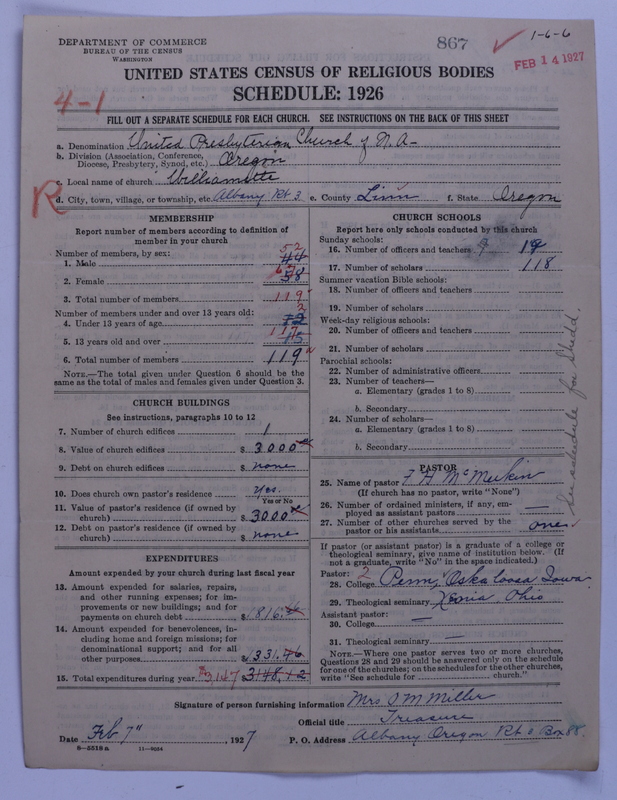 DEPARTMENT OF COMMERCE
BUREAU OF THE CENSUS
WASHINGTON
867
1-6-6
FEB 14 1927
UNITED STATES CENSUS OF RELIGIOUS BODIES
SCHEDULE: 1926
4-1
FILL OUT A SEPARATE SCHEDULE FOR EACH CHURCH. SEE INSTRUCTIONS ON THE BACK OF THIS SHEET
a. Denomination United Presbyterian Church of N.A-
b. Division (Association, Conference,
Diocese, Presbytery, Synod, etc.) Oregon
c. Local name of church Williamette
R
d. City, town, village, or township, etc. Albany Rt 3 e. County Linn f. State Oregon
MEMBERSHIP
Report number of members according to definition of
member in your church
Number of members, by sex:
52
1. Male 44
67
2. Female 58
3. Total number of members 119
Number of members under and over 13 years old:
2
4. Under 13 years of age
117
5. 13 years old and over
6. Total number of members 119
NOTE.—The total given under Question 6 should be the
same as the total of males and females given under Question 3.
CHURCH BUILDINGS
See instructions, paragraphs 10 to 12
7. Number of church edifices 1
8. Value of church edifices $ 3000
9. Debt on church edifices $ none
10. Does church own pastor's residence Yes.
Yes or No
11. Value of pastor's residence (if owned by
church) $ 3000
12. Debt on pastor's residence (if owned by
church) $ none
EXPENDITURES
Amount expended by your church during last fiscal year
13. Amount expended for salaries, repairs,
and other running expenses; for im-
provements or new buildings; and for
payments on church debt $ 1816
14. Amount expended for benevolences, in-
cluding home and foreign missions; for
denominational support; and for all
other purposes $ 1331.46
15. Total expenditures during year $3147 $ 3148.12
CHURCH SCHOOLS
Report here only schools conducted by this church
Sunday schools:
16. Number of officers and teachers 9 19
17. Number of scholars 118
Summer vacation Bible schools:
18. Number of officers and teachers
19. Number of scholars
Week-day religious schools:
20. Number of officers and teachers
21. Number of scholars
Parochial schools:
22. Number of administrative officers
23. Number of teachers—
a. Elementary (grades 1 to 8)
b. Secondary
24. Number of scholars—
a. Elementary (grades 1 to 8)
b. Secondary
See schedule for Shedd.
PASTOR
25. Name of pastor F H McMeekin
(If church has no pastor, write "None")
26. Number of ordained ministers, if any, em-
ployed as assistant pastors —
27. Number of other churches served by the
pastor or his assistants one
If pastor (or assistant pastor) is a graduate of a college or
theological seminary, give name of institution below. (If
not a graduate, write "No" in the space indicated.)
Pastor: 2
28. College Penn, Oskaloosa Iowa
29. Theological seminary Xenia, Ohio
Assistant pastor:
30. College —
31. Theological seminary —
NOTE.—Where one pastor serves two or more churches,
Questions 28 and 29 should be answered only on the schedule
for one of the churches; on the schedules for the other churches,
write "See schedule for church."
Signature of person furnishing information Mrs O M Miller
Official title Treasure
Date Feb 7", 1927 P. O. Address Albany Oregon Rt 3 Box 88
8—5518 a 11—9054